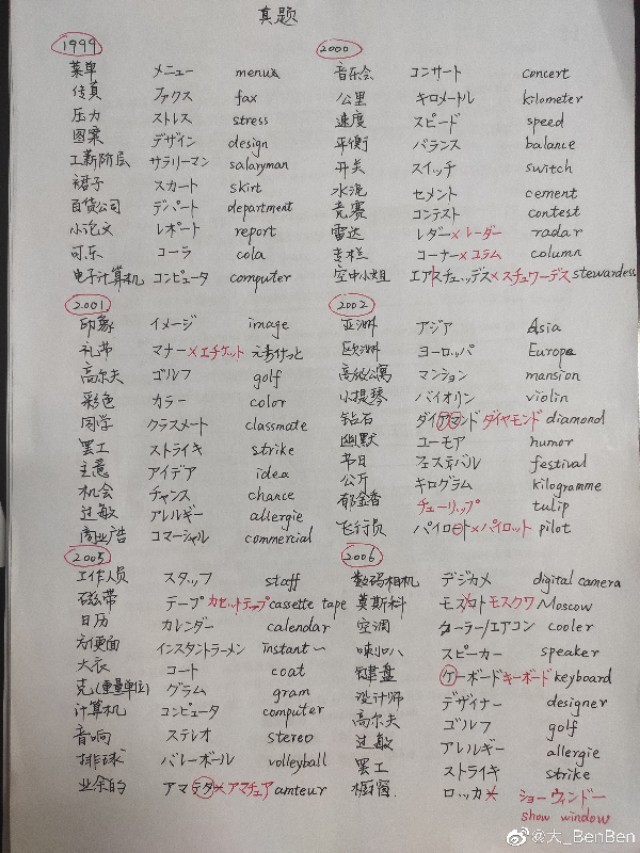 真题
1999
菜单 メニュー menu
传真 ファクス fax
压力 ストレス stress
图案 デザイン design
工薪阶层 サラリーマン salaryman
裙子 スカート skirt
百货公司 デパート department
小论文 レポート report
可乐 コーラ cola
电子计算机 コンピュータ computer
2000
音乐会 コンサート concert
公里 キロメートル kilometer
速度 スピード speed
平衡 バランス balance
开关 スイッチ switch
水泥 セメント cement
竞赛 コンテスト contest
雷达 レダー×レーダー radar
专栏 コーナー×コラム column
空中小姐 スチュワーデス stewardess
2001
印象 イメージ image
礼节 マナー×エチケット
高尔夫 ゴルフ golf
彩色 カラー color
同学 クラスメート classmate
罢工 ストライキ strike
主意 アイデア idea
机会 チャンス chance
过敏 アレルギー allergie
商业广告 コマーシャル commercial
2002
亚洲 アジア Asia
欧洲 ヨーロッパ Europe
高级公寓 マンション mansion
小提琴 バイオリン violin
钻石 ダイアマンド ダイヤモンド diamond
幽默 ユーモア humor
节日 フェスティバル festival
公斤 キログラム kilogramme
郁金香 チューリップ tulip
飞行员 パイロート×パイロット pilot
2005
工作人员 スタッフ staff
磁带 テープ カセットテップ cassette tape
日历 カレンダー calendar
方便面 インスタントラーメン instant~
大衣 コート coat
克(重量单位) グラム gram
计算机 コンピュータ computer
音响 ステレオ stereo
排球 バレーボール volleyball
业余的 アマテダ×アマチュア amteur
2006
数码相机 デジカメ digital camera
莫斯科 モスコト モスクワ Moscow
空调 クーラー/エアコン cooler
喇叭 スピーカー speaker
键盘 ケーボード キーボード keyboard
设计师 デザイナー designer
高尔夫 ゴルフ golf
过敏 アレルギー allergie
罢工 ストライキ strike
橱窗 ロッカ× ショーウィンドー
show window
@大_BenBen